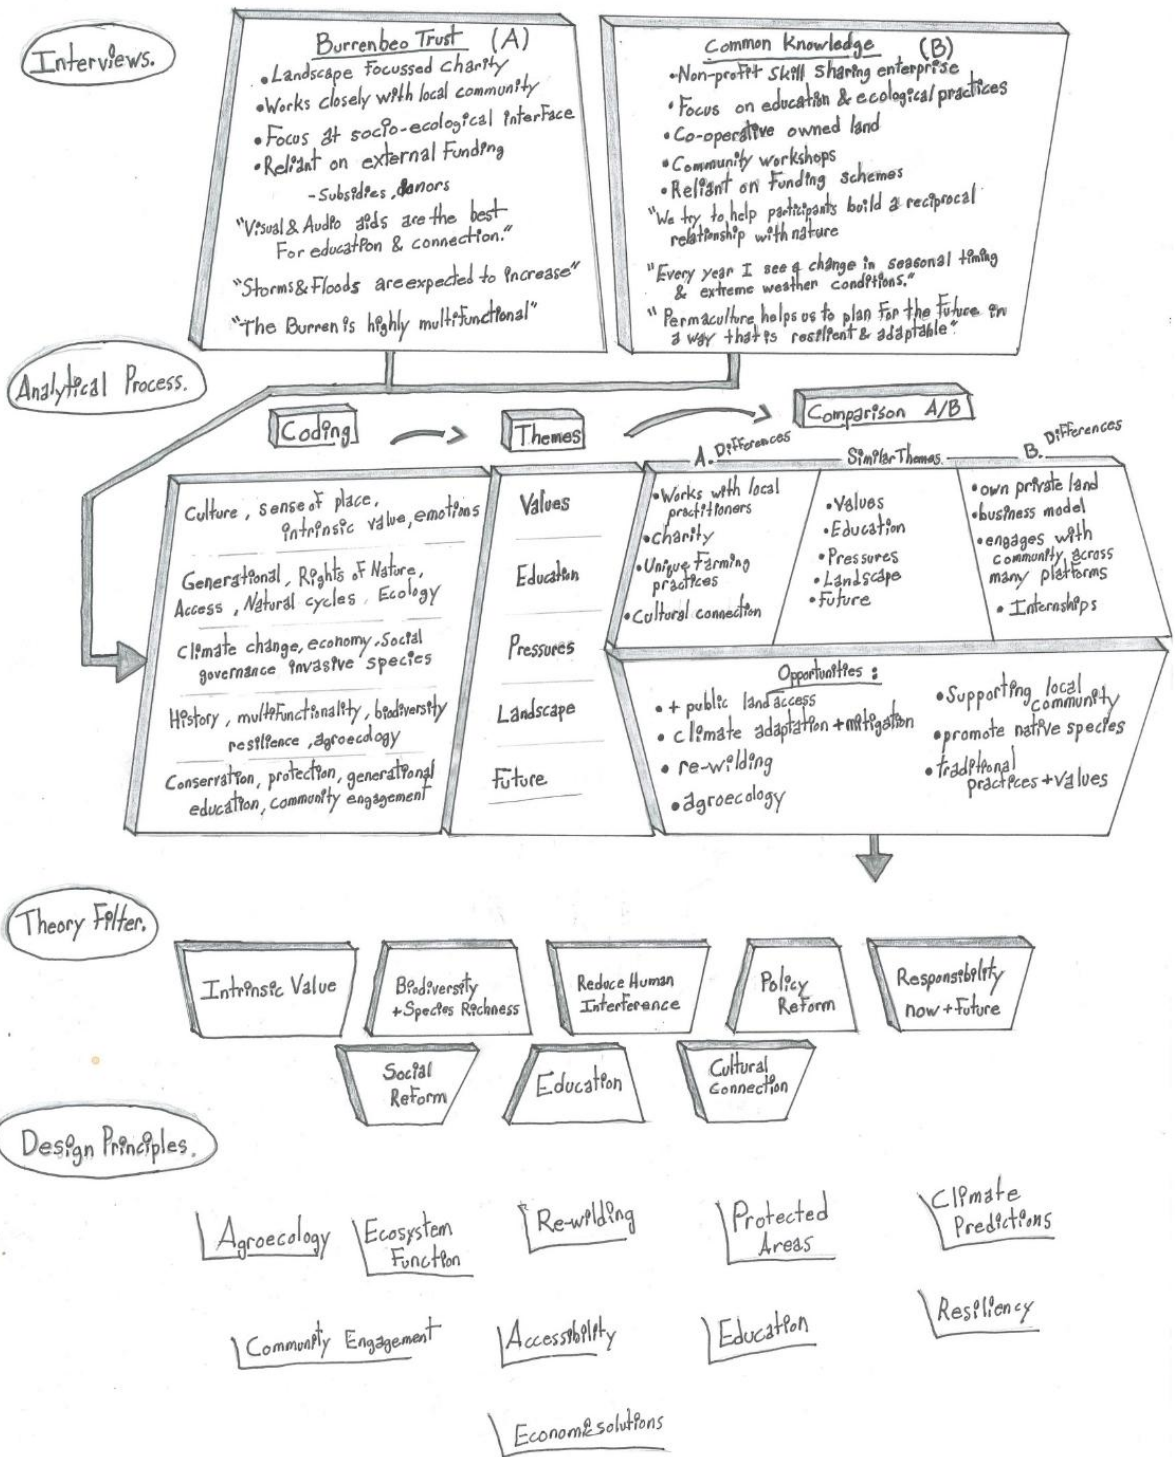 Interviews.
Burrenbeo Trust (A)
•Landscape Focussed charity
•Works closely with local community
•Focus at socio-ecological interface
•Reliant on external Funding
-Subsidies, donors
"Visual & Audio aids are the best
For education & connection."
"Storms & Floods are expected to increase"
"The Burren is highly multifunctional"
Common Knowledge (B)
•Non-profit skill sharing enterprise
•Focus on education & ecological practices
•Co-operative owned land
•Community workshops
•Reliant on Funding schemes
"We try to help participants build a reciprocal
relationship with nature
"Every year I see a change in seasonal timing
& extreme weather conditions."
"Permaculture helps us to plan for the future in
a way that is resilient & adaptable"
Analytical Process.
Coding
Themes
Comparison A/B
Culture, sense of place,
intrinsic value, emotions
Generational, Rights of Nature,
Access, Natural cycles, Ecology
Climate change, economy, Social
governance invasive species
History, multifunctionality, biodiversity
resilience, agroecology
Conservation, protection, generational
education, community engagement
Values
Education
Pressures
Landscape
Future
A. Differences
•Works with local
practitioners
•charity
•Unique Farming
practices
•Cultural connection
Similar Themes.
•Values
•Education
•Pressures
•Landscape
•Future
B. Differences
•own private land
•business model
•engages with
community across
many platforms
•Internships
Opportunities:
•+ public land access
•climate adaptation + mitigation
•re-wilding
•agroecology
•Supporting local
community
•promote native species
•traditional
practices + values
Theory Filter.
Intrinsic Value
Biodiversity
+ Species Richness
Reduce Human
Interference
Policy
Reform
Responsibility
now + Future
Social
Reform
Education
Cultural
Connection
Design Principles.
Agroecology
Ecosystem
Function
Re-wilding
Protected
Areas
Climate
Predictions
Community Engagement
Accessibility
Education
Resiliency
Economic solutions